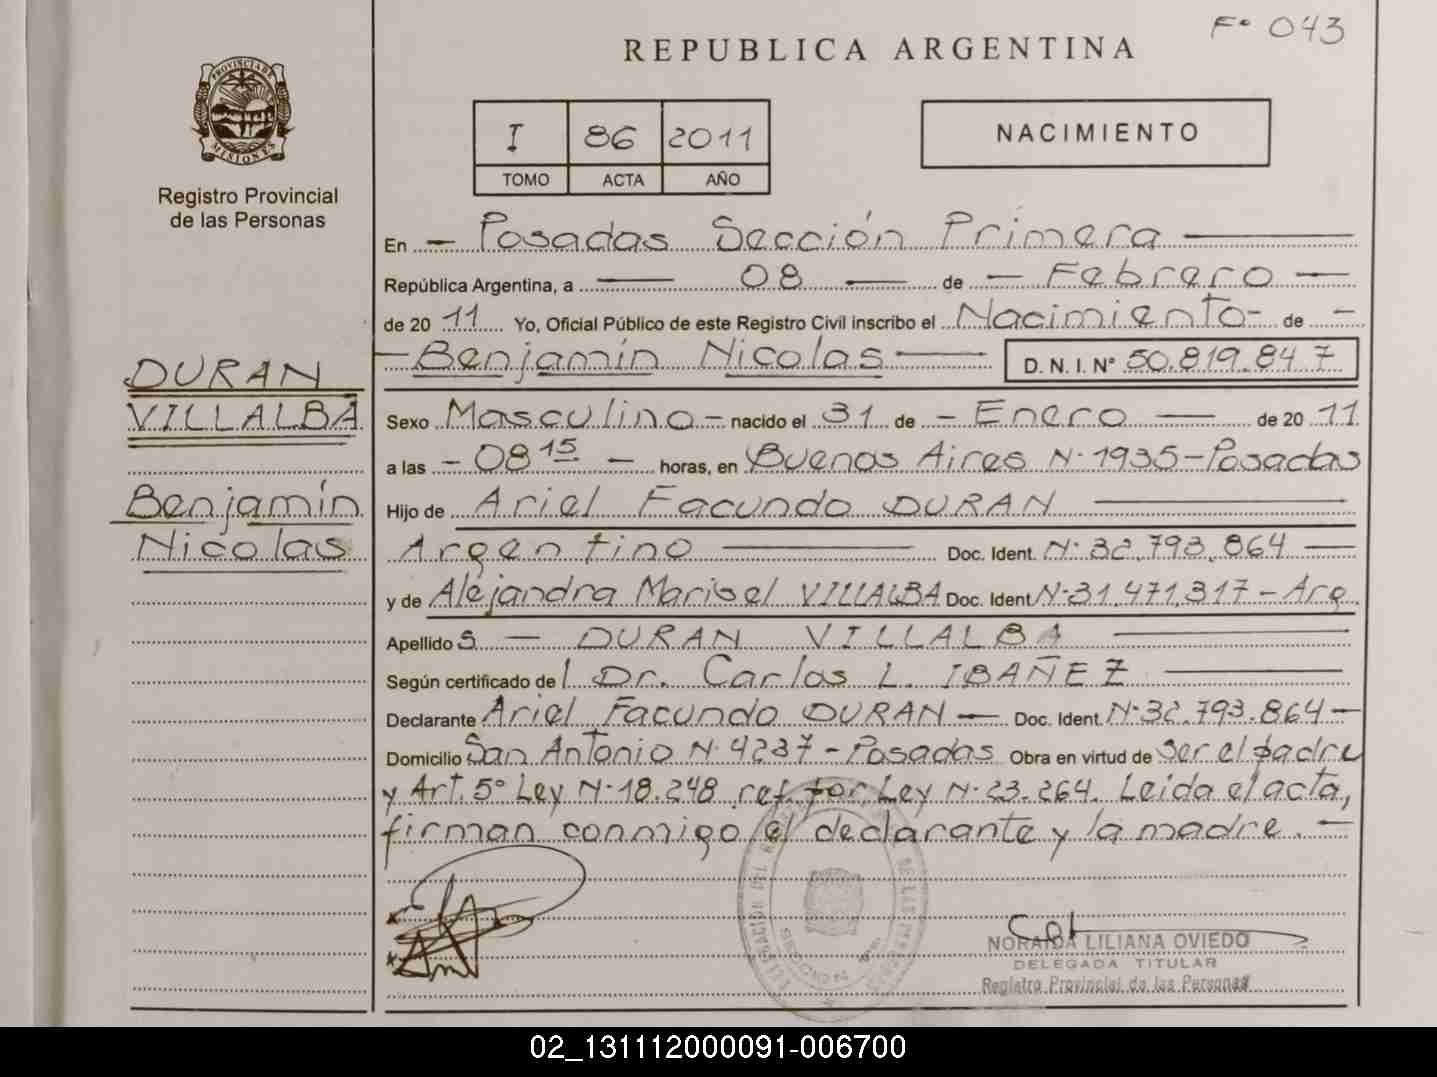 Fº 043
REPUBLICA ARGENTINA
PROVINCIA DE
MISIONES
Registro Provincial
de las Personas
I 86 2011
TOMO ACTA AÑO
NACIMIENTO
En - Posadas Sección Primera
República Argentina, a 08 de - Febrero -
de 20 11 Yo, Oficial Público de este Registro Civil inscribo el Nacimiento - de -
- Benjamín Nicolas - D. N. I. Nº 50.819.847
DURAN
VILLALBA
Benjamín
Nicolas
Sexo Masculino - nacido el 31 de - Enero - de 20 11
a las - 08 15 - horas, en Buenos Aires Nº 1935 - Posadas
Hijo de Ariel Facundo DURAN
Argentino Doc. Ident. Nº 32.793.864
y de Alejandra Marisel VILLALBA Doc. Ident Nº 31.471.317 - Arg.
Apellido s - DURAN VILLALBA
Según certificado de l Dr. Carlos L. IBAÑEZ
Declarante Ariel Facundo DURAN - Doc. Ident. Nº 32.793.864 -
Domicilio San Antonio Nº 4237 - Posadas Obra en virtud de Ser el padre
y Art. 5º Ley Nº 18.248 ref. por Ley Nº 23.264. Leida el acta,
firman conmigo el declarante y la madre. -
NORAIDA LILIANA OVIEDO
DELEGADA TITULAR
Registro Provincial de las Personas
02_131112000091-006700